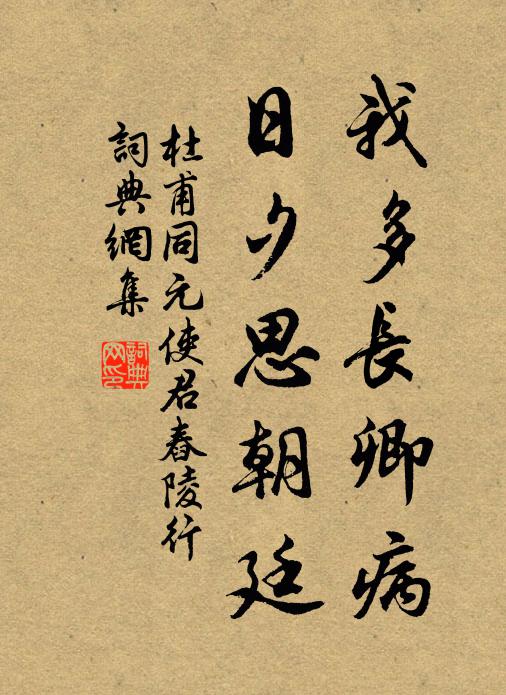 我多長卿病
日夕思朝廷
杜甫同元使君舂陵行
詞典網集
詞典網印